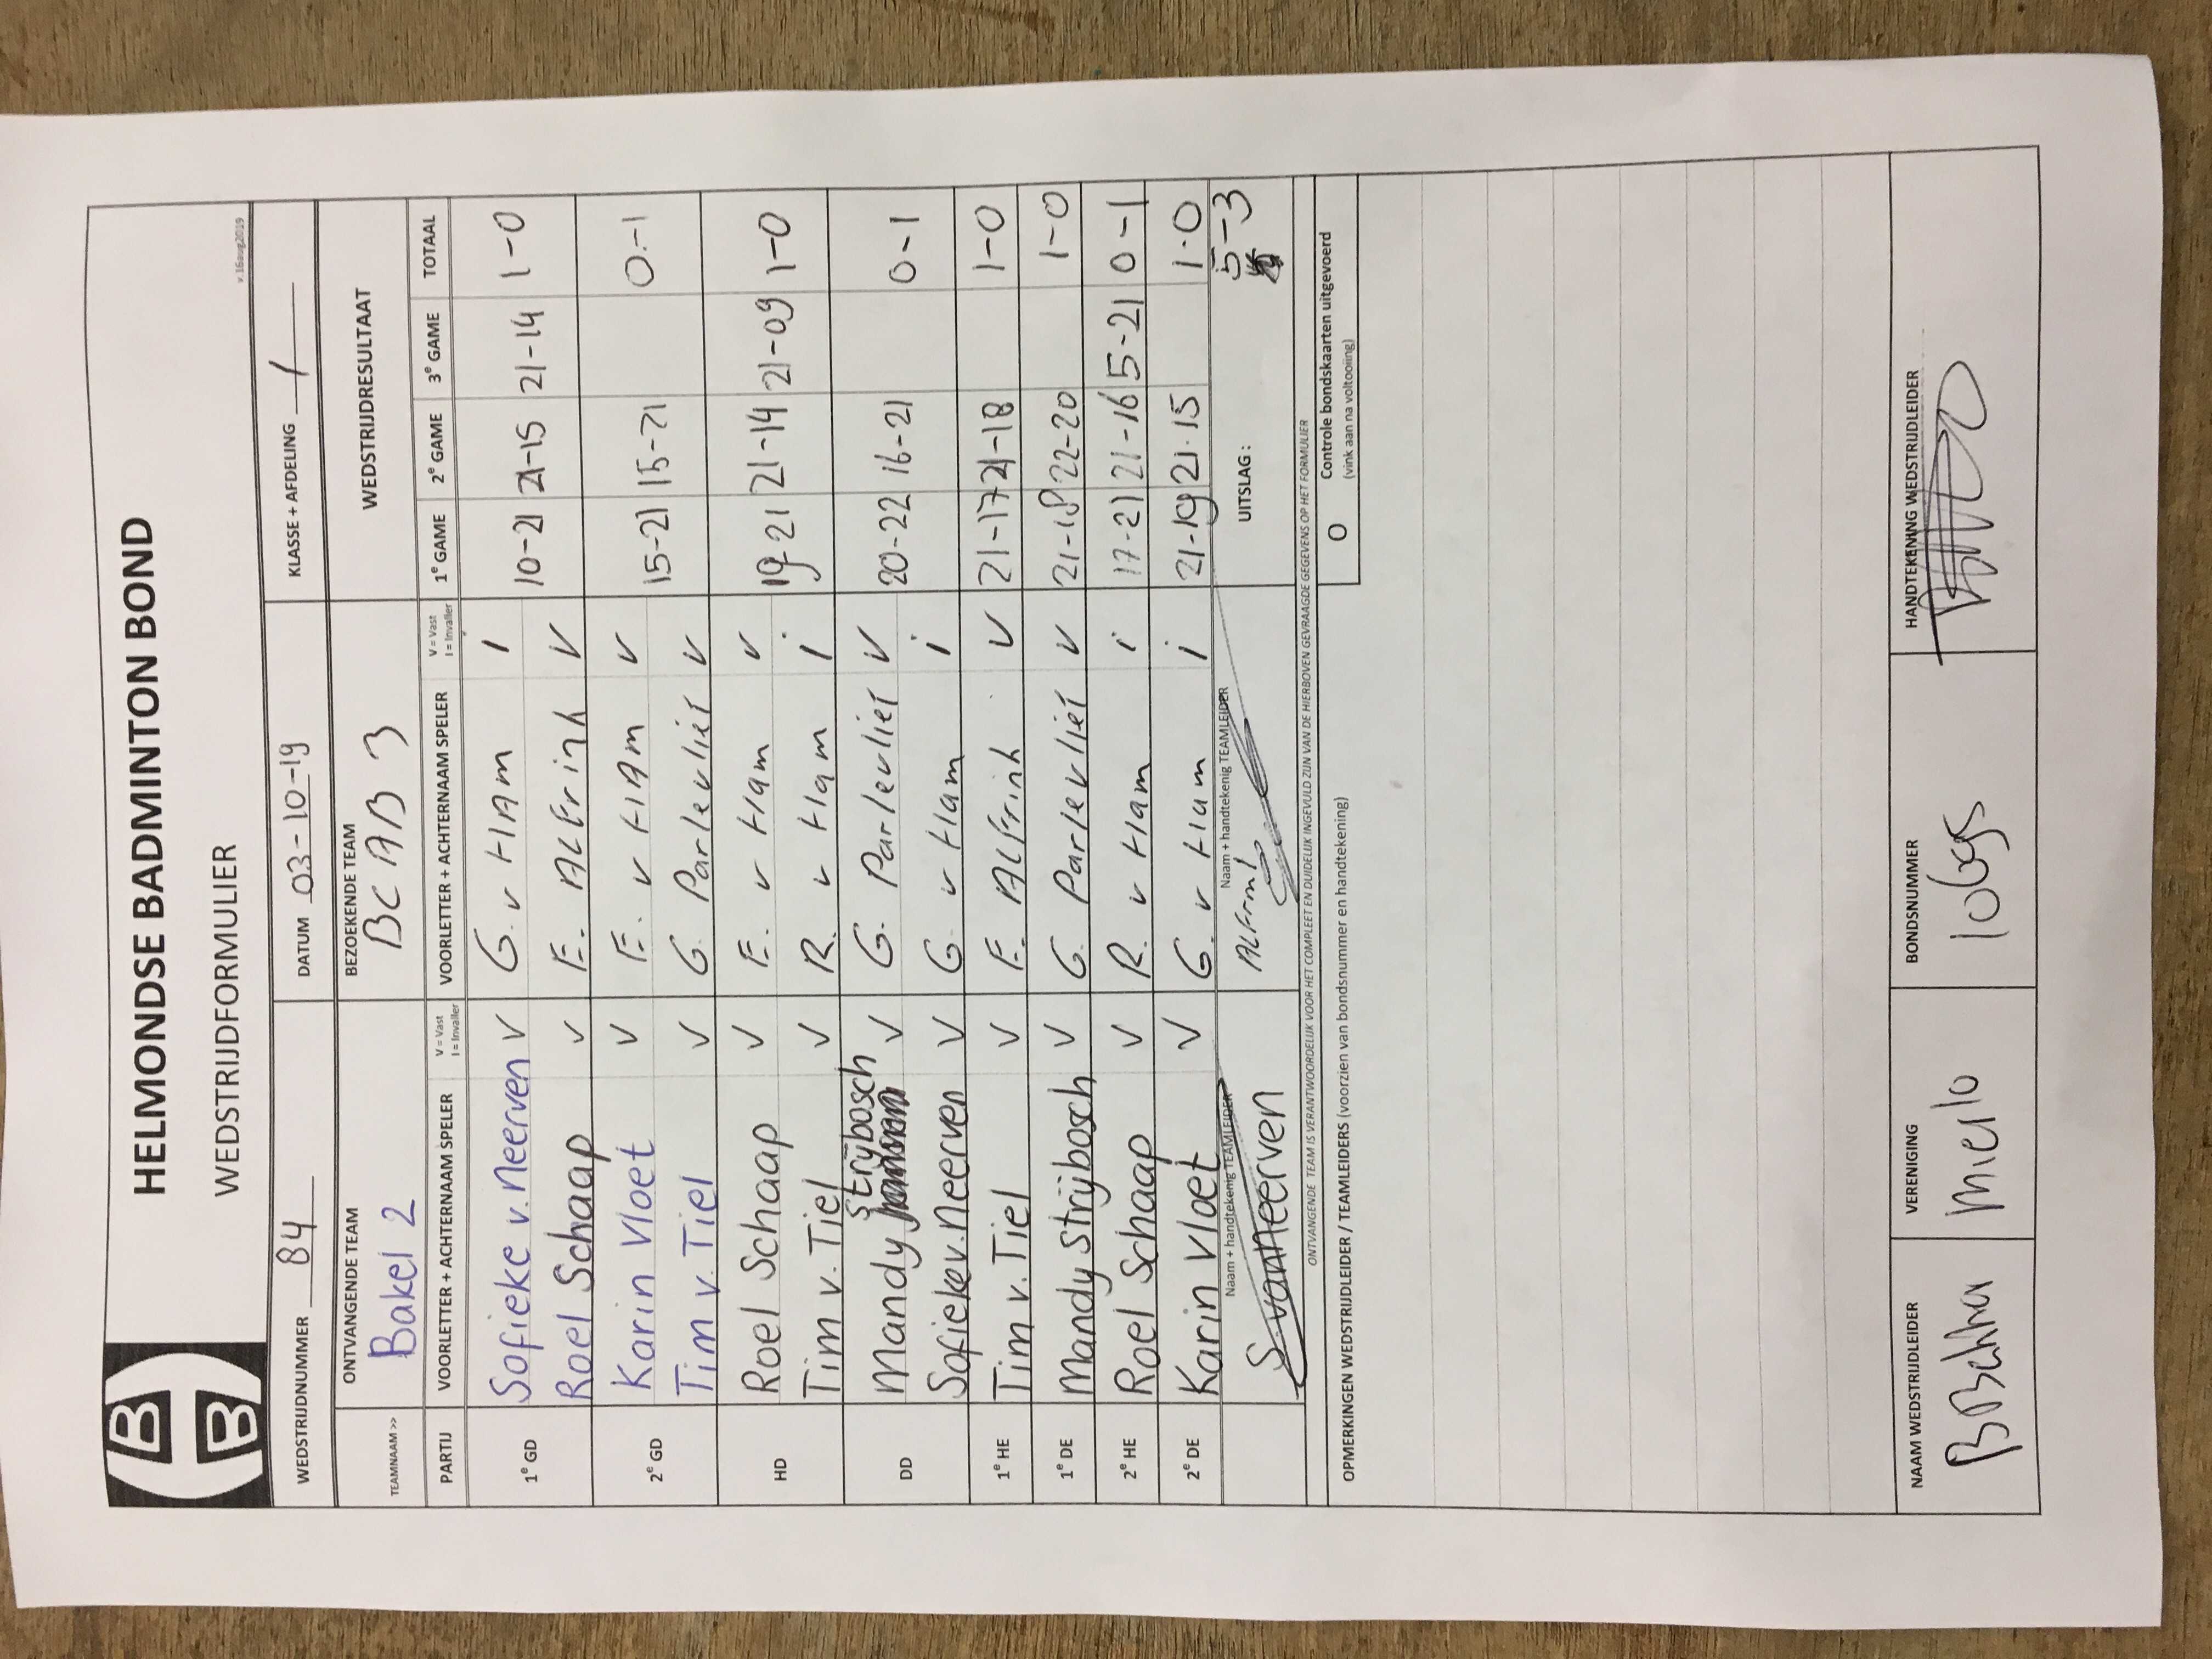 HELMONDSE BADMINTON BOND
WEDSTRIJDFORMULIER
v.16aug2019
WEDSTRIJDNUMMER 84 DATUM 03-10-19 KLASSE + AFDELING 1
TEAMNAAM >> ONTVANGENDE TEAM BEZOEKENDE TEAM WEDSTRIJDRESULTAAT
Bakel 2 BC AB 3
PARTIJ VOORLETTER + ACHTERNAAM SPELER V = Vast I = Invaller VOORLETTER + ACHTERNAAM SPELER V = Vast I = Invaller 1e GAME 2e GAME 3e GAME TOTAAL
1e GD Sofieke v. Neerven V G. v HAm I 10-21 21-15 21-14 1-0
Roel Schaap V E. ALFrink V
2e GD Karin Vloet V E. v HAm V 15-21 15-21 0-1
Tim v. Tiel V G. Parlevliet V
HD Roel Schaap V E. v Ham V 19 21 21-14 21-09 1-0
Tim v. Tiel V R. v Ham i
DD Mandy Strijbosch V G. Parlevliet V 20-22 16-21 0-1
Sofieke v. Neerven V G. v Ham i
1e HE Tim v. Tiel V E. ALFrink V 21-17 21-18 1-0
1e DE Mandy Strijbosch V G. Parlevliet V 21-18 22-20 1-0
2e HE Roel Schaap V R. v Ham i 17-21 21-16 5-21 0-1
2e DE Karin Vloet V G. v Ham i 21-19 21-15 1-0
Naam + handtekenig TEAMLEIDER Naam + handtekenig TEAMLEIDER UITSLAG : 5-3
S. van Neerven
ONTVANGENDE TEAM IS VERANTWOORDELIJK VOOR HET COMPLEET EN DUIDELIJK INGEVULD ZIJN VAN DE HIERBOVEN GEVRAAGDE GEGEVENS OP HET FORMULIER
OPMERKINGEN WEDSTRIJDLEIDER / TEAMLEIDERS (voorzien van bondsnummer en handtekening)
O Controle bondskaarten uitgevoerd
(vink aan na voltooiing)
NAAM WEDSTRIJDLEIDER VERENIGING BONDSNUMMER HANDTEKENING WEDSTRIJDLEIDER
Mierlo